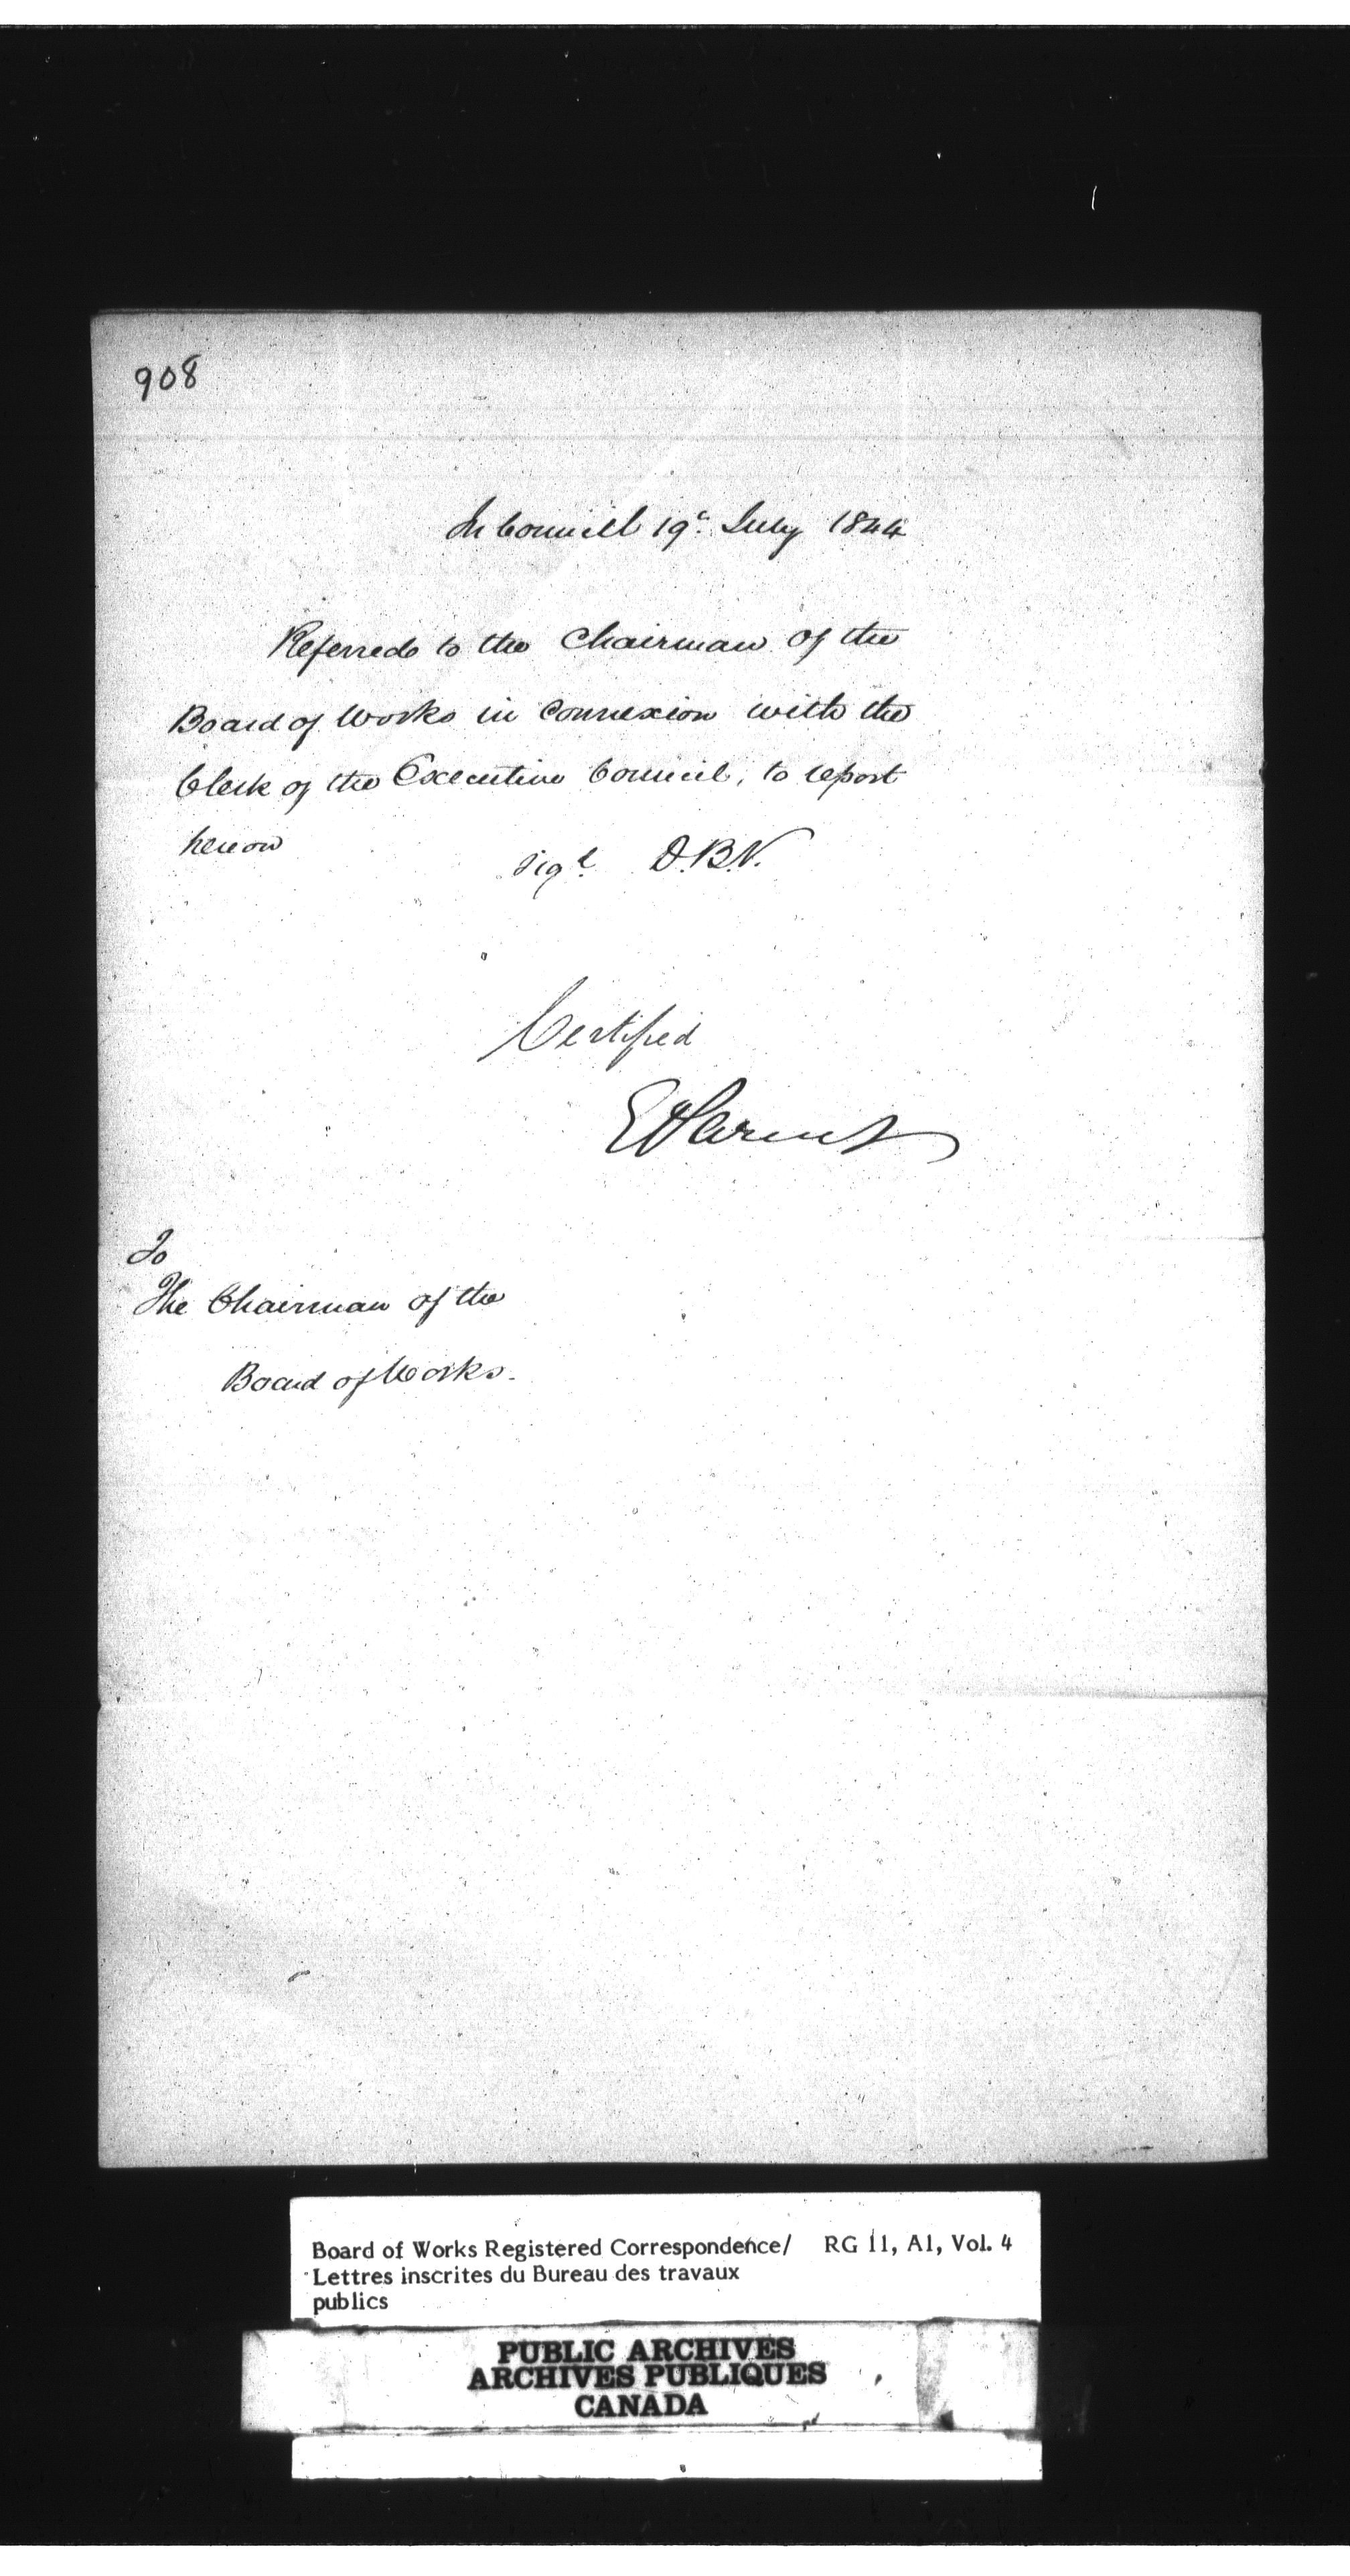 908
In Council 19th July 1844
Referred to the Chairman of the
Board of Works in Connexion with the
Clerk of the Executive Council, to report
hereon
Sigd. D.B.V.
Certified
E Parent
To
The Chairman of the
Board of Works.
Board of Works Registered Correspondence/ RG 11, A1, Vol. 4
Lettres inscrites du Bureau des travaux
publics
PUBLIC ARCHIVES
ARCHIVES PUBLIQUES
CANADA